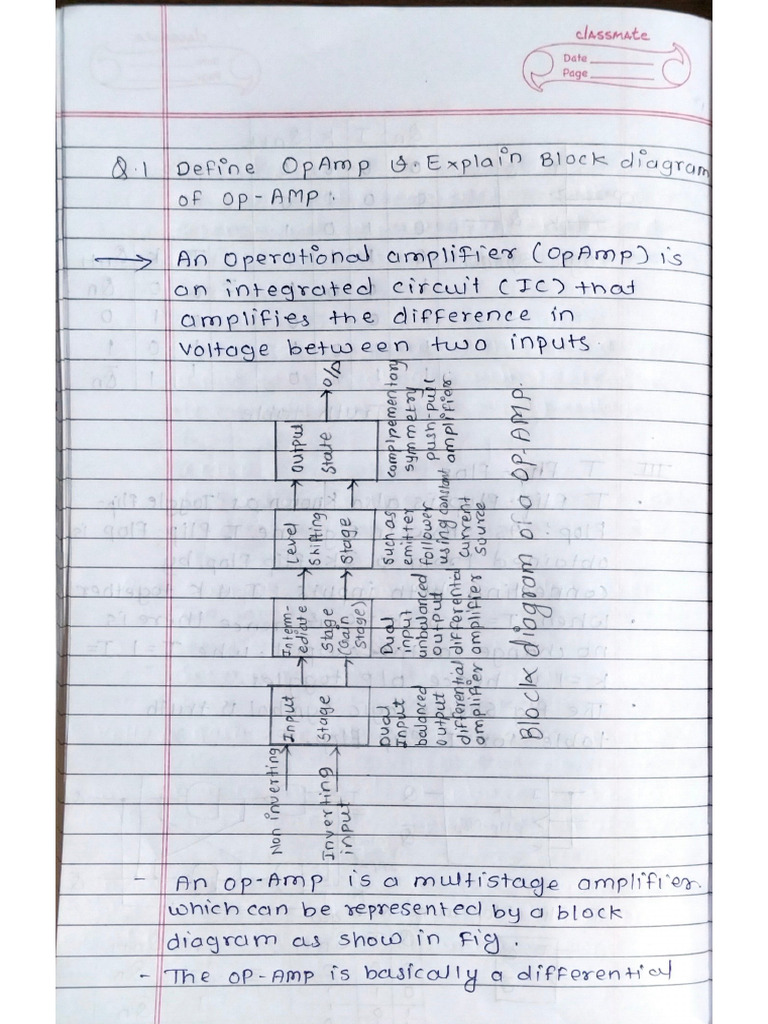 classmate
Date
Page
Q.1 Define OpAmp & Explain Block diagram
of OP-AMP.
An operational amplifier (OpAmp) is
an integrated circuit (IC) that
amplifies the difference in
voltage between two inputs.
Non inverting
Inverting
input
Input
Stage
Interm-
ediate
Stage
(Gain
Stage)
Level
Shifting
Stage
Output
State
O/P
Dual
Input
balanced
output
differential
amplifier
Dual
input
unbalanced
output
differential
amplifier
such as
emitter
follower
using constant
current
source
complpementary
symmetry
push-pull
amplifier.
Block diagram of a OP-AMP.
- An OP-Amp is a multistage amplifier
which can be represented by a block
diagram as show in Fig.
- The OP-AMP is basically a differential